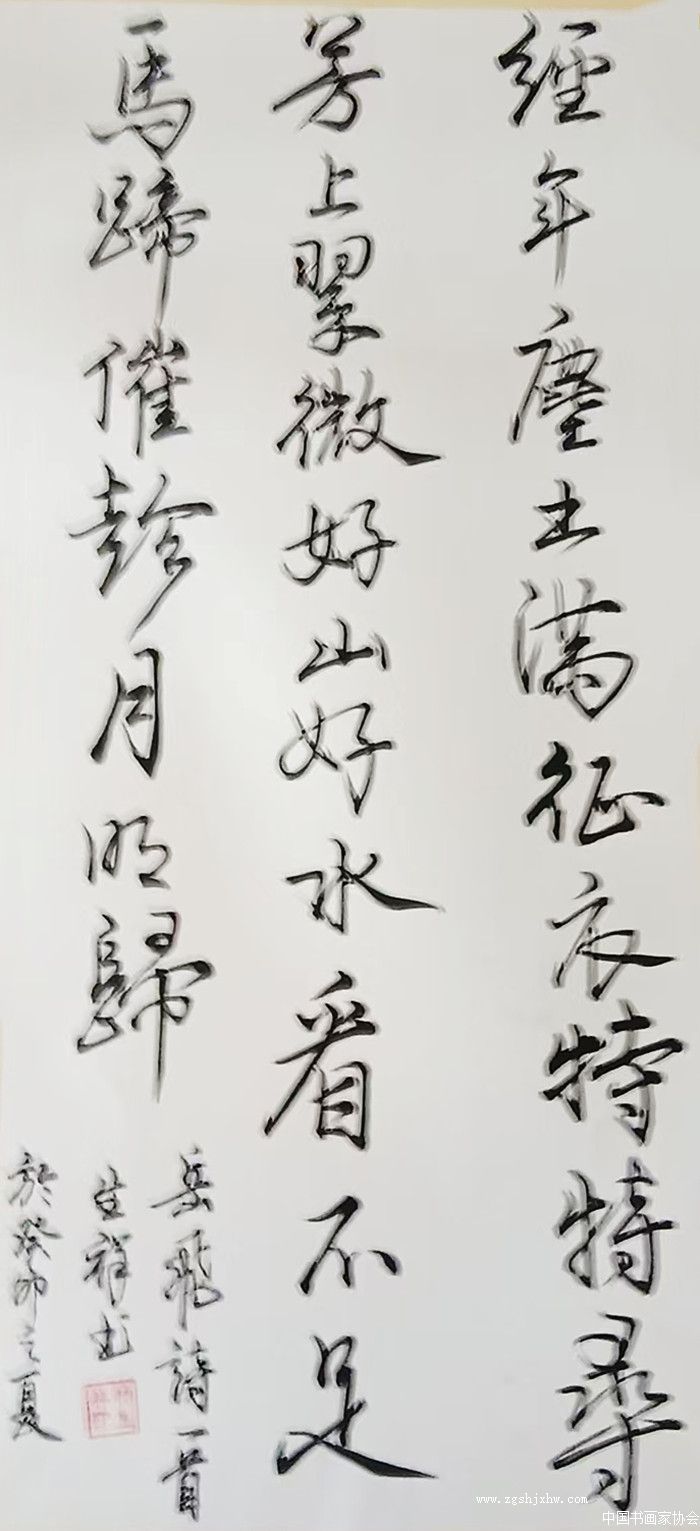 經年塵土滿征衣特特尋
芳上翠微好山好水看不足
馬蹄催趁月明歸
岳飛詩一首
生祥书
於癸卯之夏
www.zgshjxhw.com
中国书画家协会